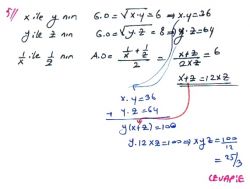 5// x ile y nin G.O = √x·y = 6 ⇒ x·y = 36
y ile z nin G.O = √y·z = 8 ⇒ y·z = 64
1/x ile 1/z nin A.O = (1/x + 1/z)/2 = (x+z)/(2/x·z) = 6
x+z = 12x·z
x·y = 36
+ y·z = 64
y(x+z) = 100
y·12xz = 100 ⇒ xyz = 100/12
= 25/3
CEVAP: E